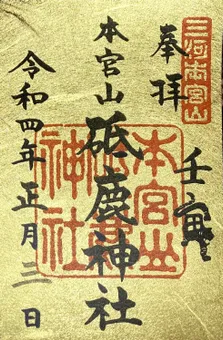 三河本宮山
奉拝
壬寅
本宮山
砥鹿神社
令和四年正月三日